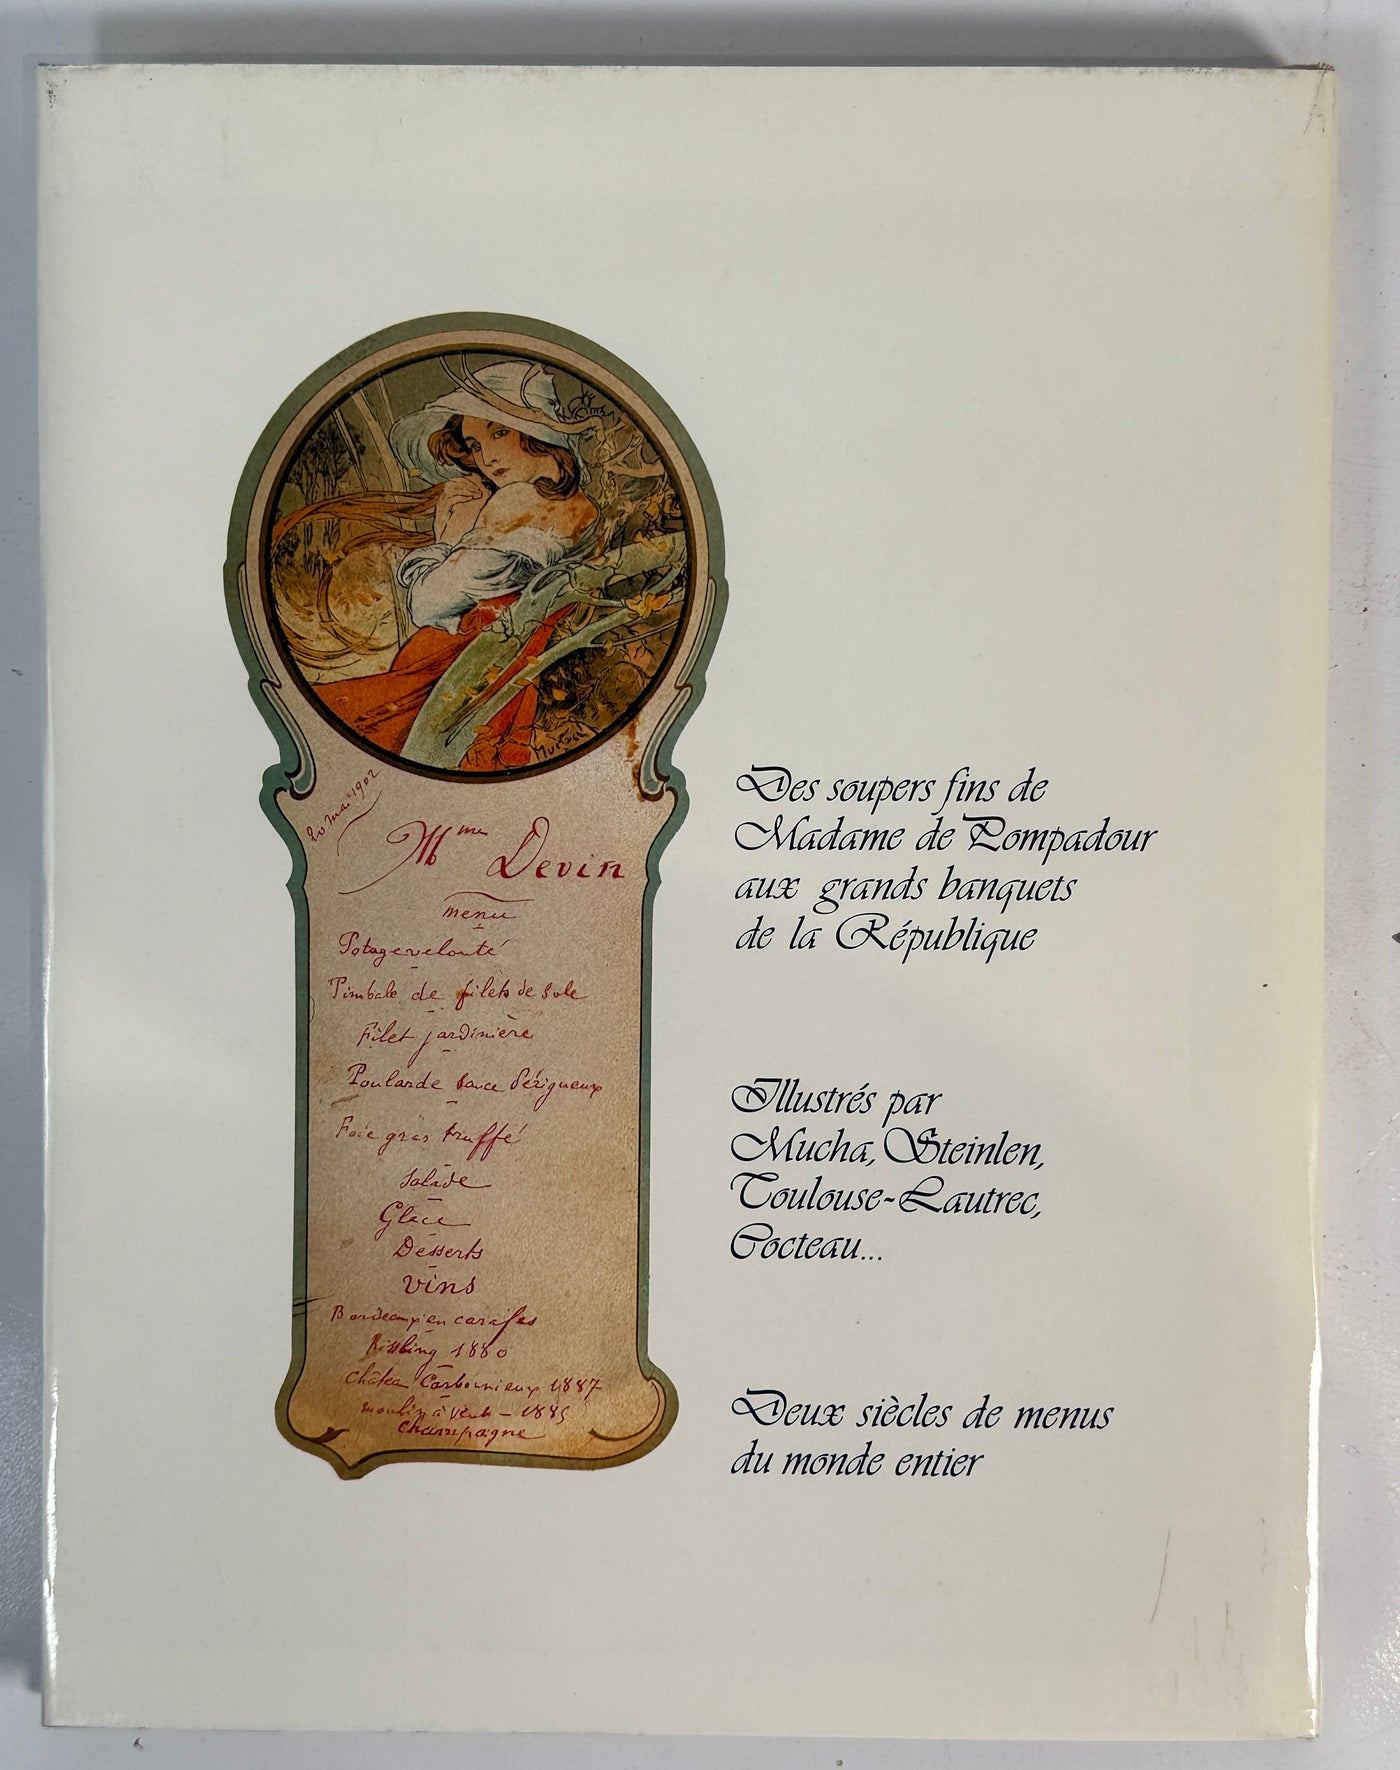 Mucha
20 mai 1902
Mme Devin
menu
Potage velouté
Timbale de filets de sole
Filet jardinière
Poularde sauce Périgueux
Foie gras truffé
Salade
Glace
Desserts
Vins
Bordeaux en carafes
Riesling 1880
Château Carbonnieux 1887
moulin à vent - 1885
Champagne
Des soupers fins de
Madame de Pompadour
aux grands banquets
de la République
Illustrés par
Mucha, Steinlen,
Toulouse-Lautrec,
Cocteau...
Deux siècles de menus
du monde entier